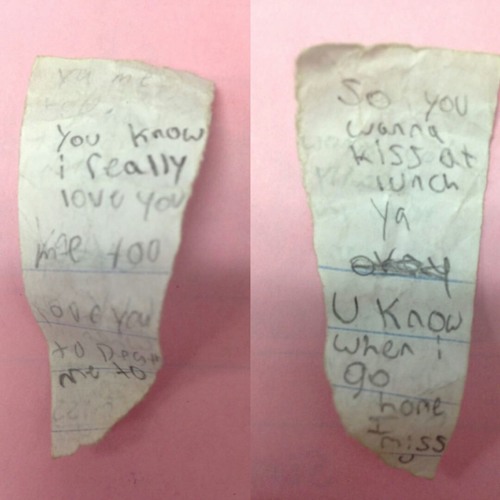 yu me
You know
i really
love you
me too
love you
to
me to
So you
wanna
kiss at
lunch
ya
okay
U Know
when i
go
home
I
miss